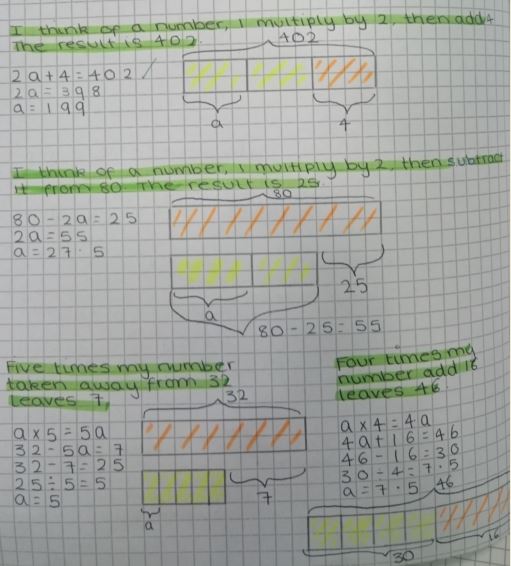 I think of a number, I multiply by 2, then add 4
The result is 402.
402
2a+4=402
2a=398
a=199
a
4
I think of a number, I multiply by 2, then subtract
it from 80. The result is 25.
80
80-2a=25
2a=55
a=27.5
25
a
80-25=55
Five times my number
taken away from 32
leaves 7,
32
a×5=5a
32-5a=7
32-7=25
25÷5=5
a=5
7
a
Four times my
number add 16
leaves 46.
a×4=4a
4a+16=46
46-16=30
30÷4=7.5
a=7.5
46
16
30